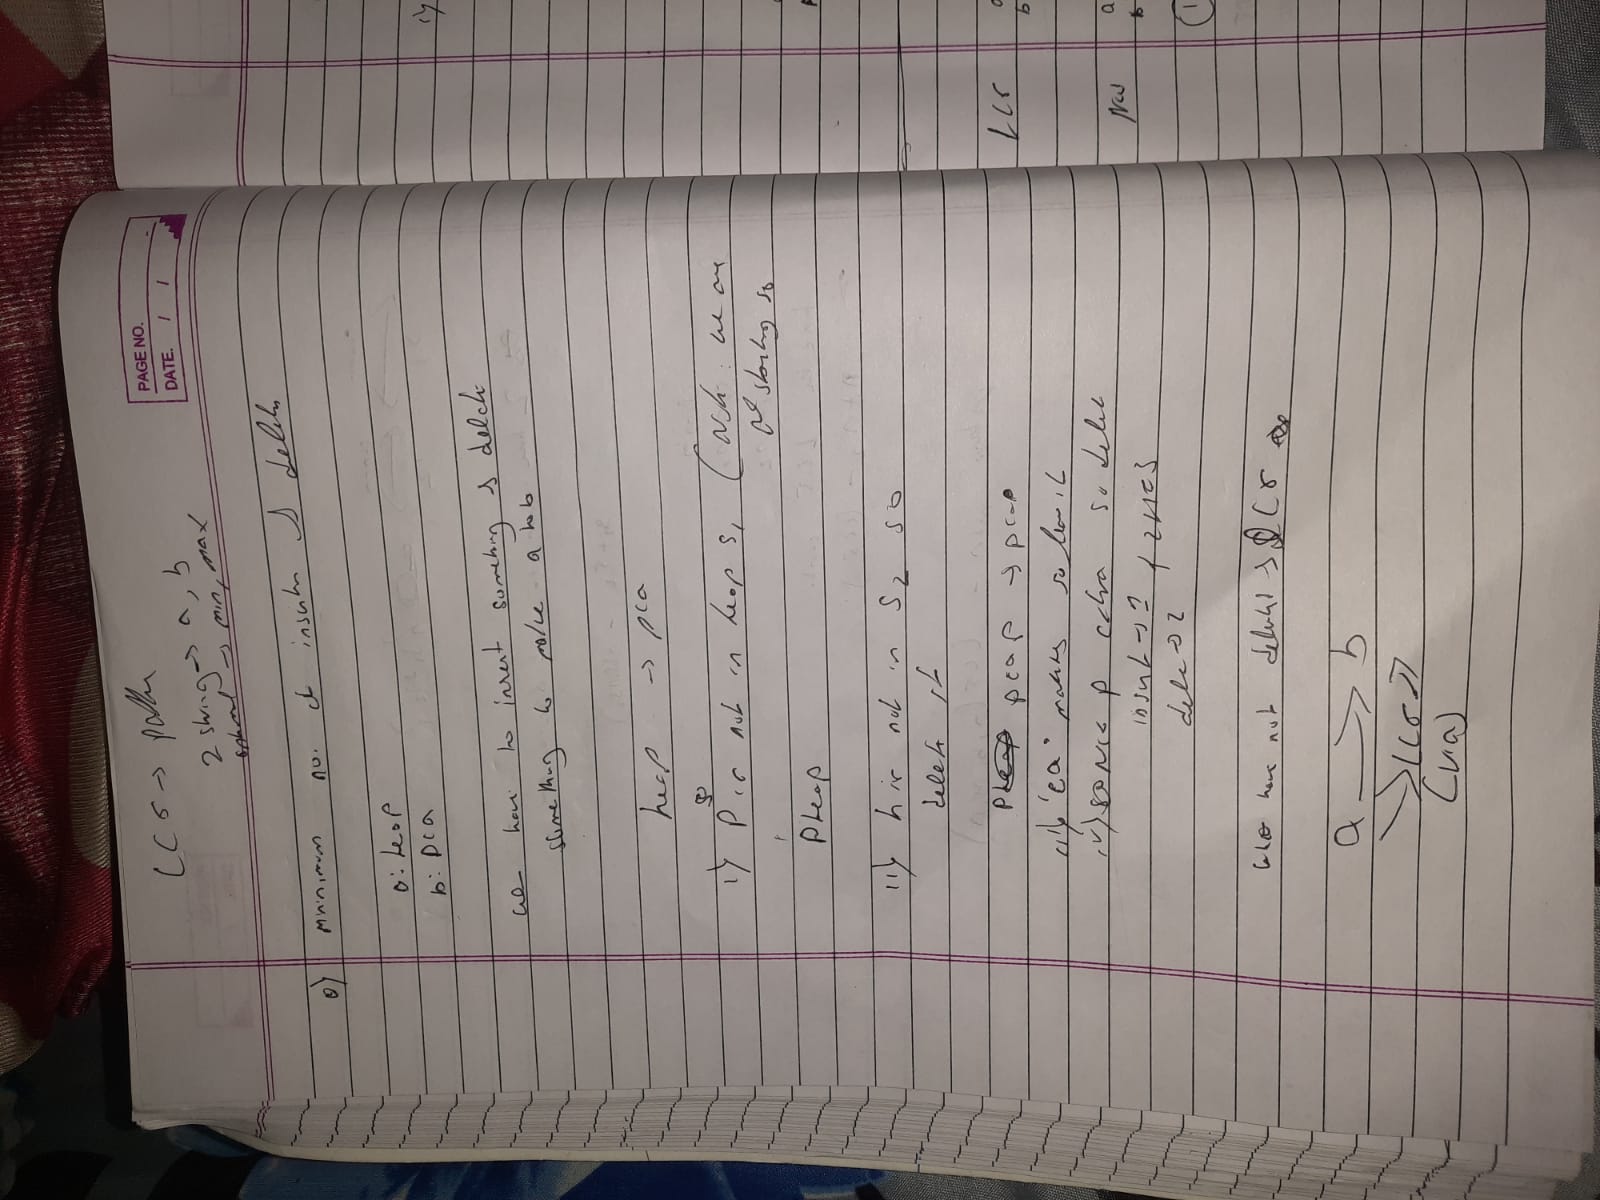 PAGE NO.
DATE. / /
LCS →
2 string → a, b
optimal → min, max
Q) Minimum no. of insertion & deletn
a: heap
b: pea
we have to insert something & delete
something to make a to b
heap → pea
so
i) P is not in heap s, (Note: we are
starting so
Pheap
ii) h is not in S2 so
delete it
peap → peap
iii) 'ea' matches so leave it
iv) so Nice p extra so delete
insert → 1
delete → 2
2+1=3
have not deleted → LCS
a → b
LCS
(via)
i)
LCS a
b
New a
b
1